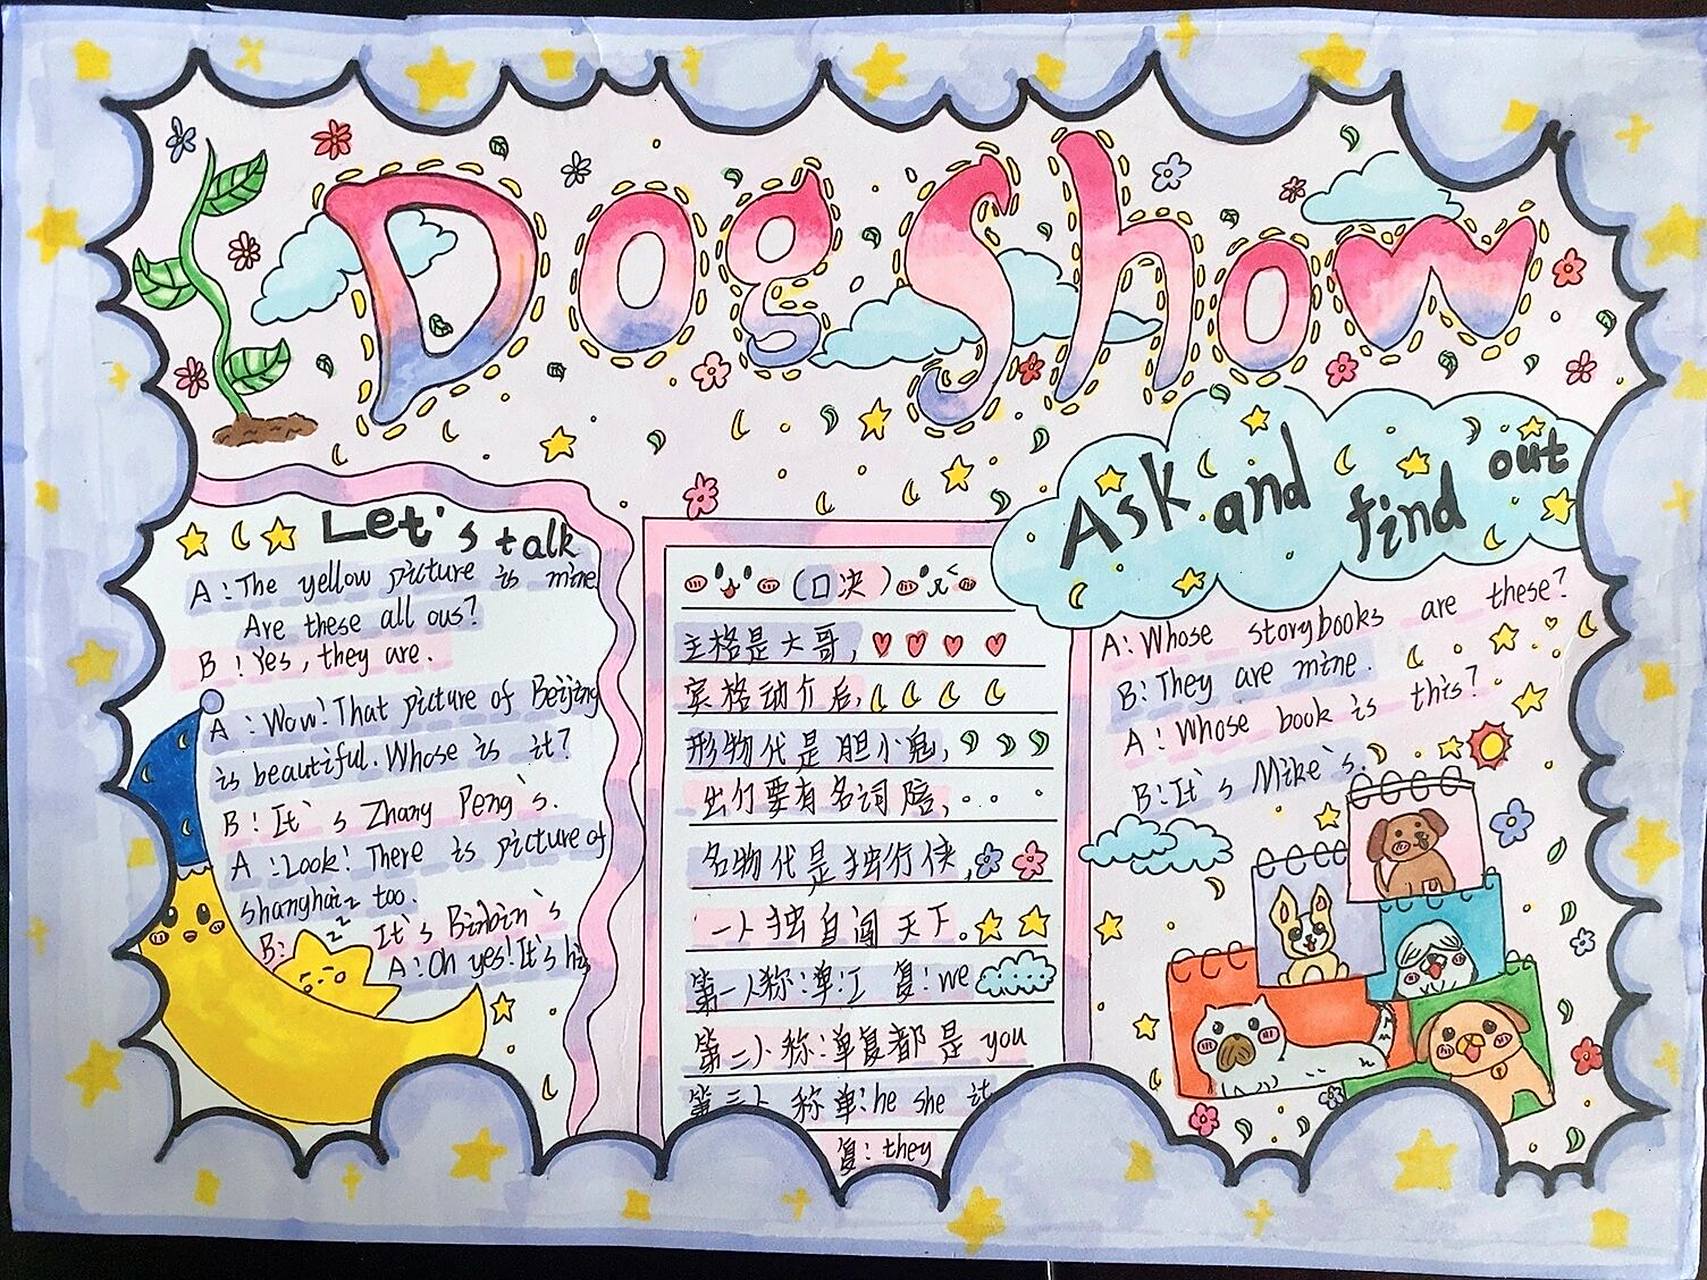 Dog Show
Let's talk
A: The yellow picture is mine.
Are these all ous?
B: Yes, they are.
A: Wow! That picture of Beijing
is beautiful. Whose is it?
B: It's Zhang Peng's.
A: Look! There is picture of
Shanghai too.
B: It's Binbin's
A: Oh yes! It's his
zzz
(口决)
主格是大哥,
宾格动介后,
形物代是胆小鬼,
出行要有名词陪,
名物代是独行侠,
一人独自闯天下。
第一人称:单:I 复:we
第二人称:单复都是you
第三人称 单:he she it
复:they
Ask and find out
A: Whose storybooks are these?
B: They are mine.
A: Whose book is this?
B: It's Mike's.